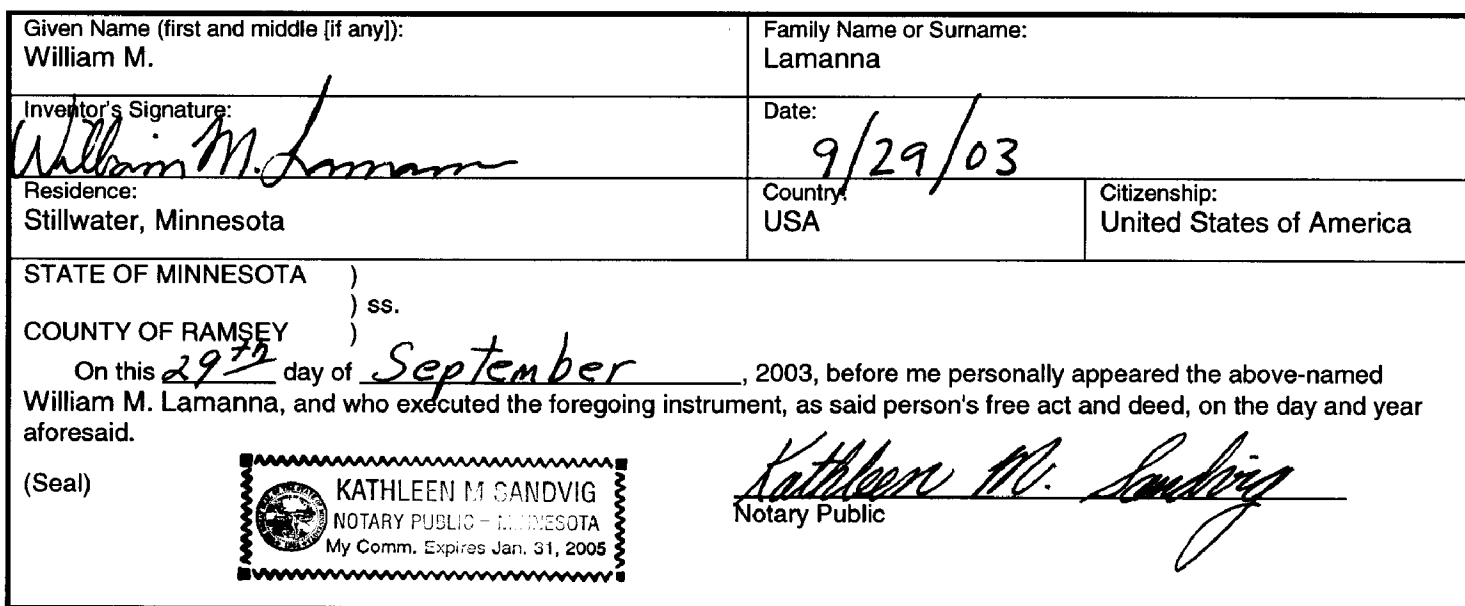 Given Name (first and middle [if any]):
William M.
Family Name or Surname:
Lamanna
Inventor's Signature:
William M. Lamanna
Date:
9/29/03
Residence:
Stillwater, Minnesota
Country:
USA
Citizenship:
United States of America
STATE OF MINNESOTA )
) ss.
COUNTY OF RAMSEY )
On this 29th day of September, 2003, before me personally appeared the above-named
William M. Lamanna, and who executed the foregoing instrument, as said person's free act and deed, on the day and year
aforesaid.
(Seal)
KATHLEEN M SANDVIG
NOTARY PUBLIC – MINNESOTA
My Comm. Expires Jan. 31, 2005
Kathleen M. Sandvig
Notary Public